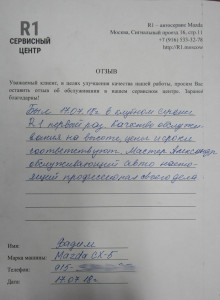 R1
СЕРВИСНЫЙ
ЦЕНТР
R1 – автосервис Mazda
Москва, Сигнальный проезд 16, стр.11
+7 (916) 533.32.76
http://R1.moscow
ОТЗЫВ
Уважаемый клиент, в целях улучшения качества нашей работы, просим Вас
оставить отзыв об обслуживании в нашем сервисном центре. Заранее
благодарны!
Был 17.07.18г. в клубном сервисе
R1 первый раз. Качество обслужи-
вания на высоте, цены и сроки
соответствуют. Мастер Александр
обслуживающий авто насто-
ящий профессионал своего дела.
Имя: Вадим
Марка машины: Mazda CX-5
Телефон: 915-
Дата: 17.07.18г.